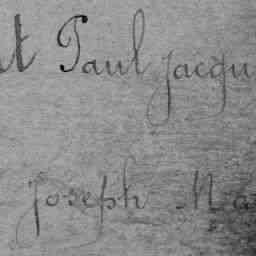 t Paul jacqu
joseph Ma